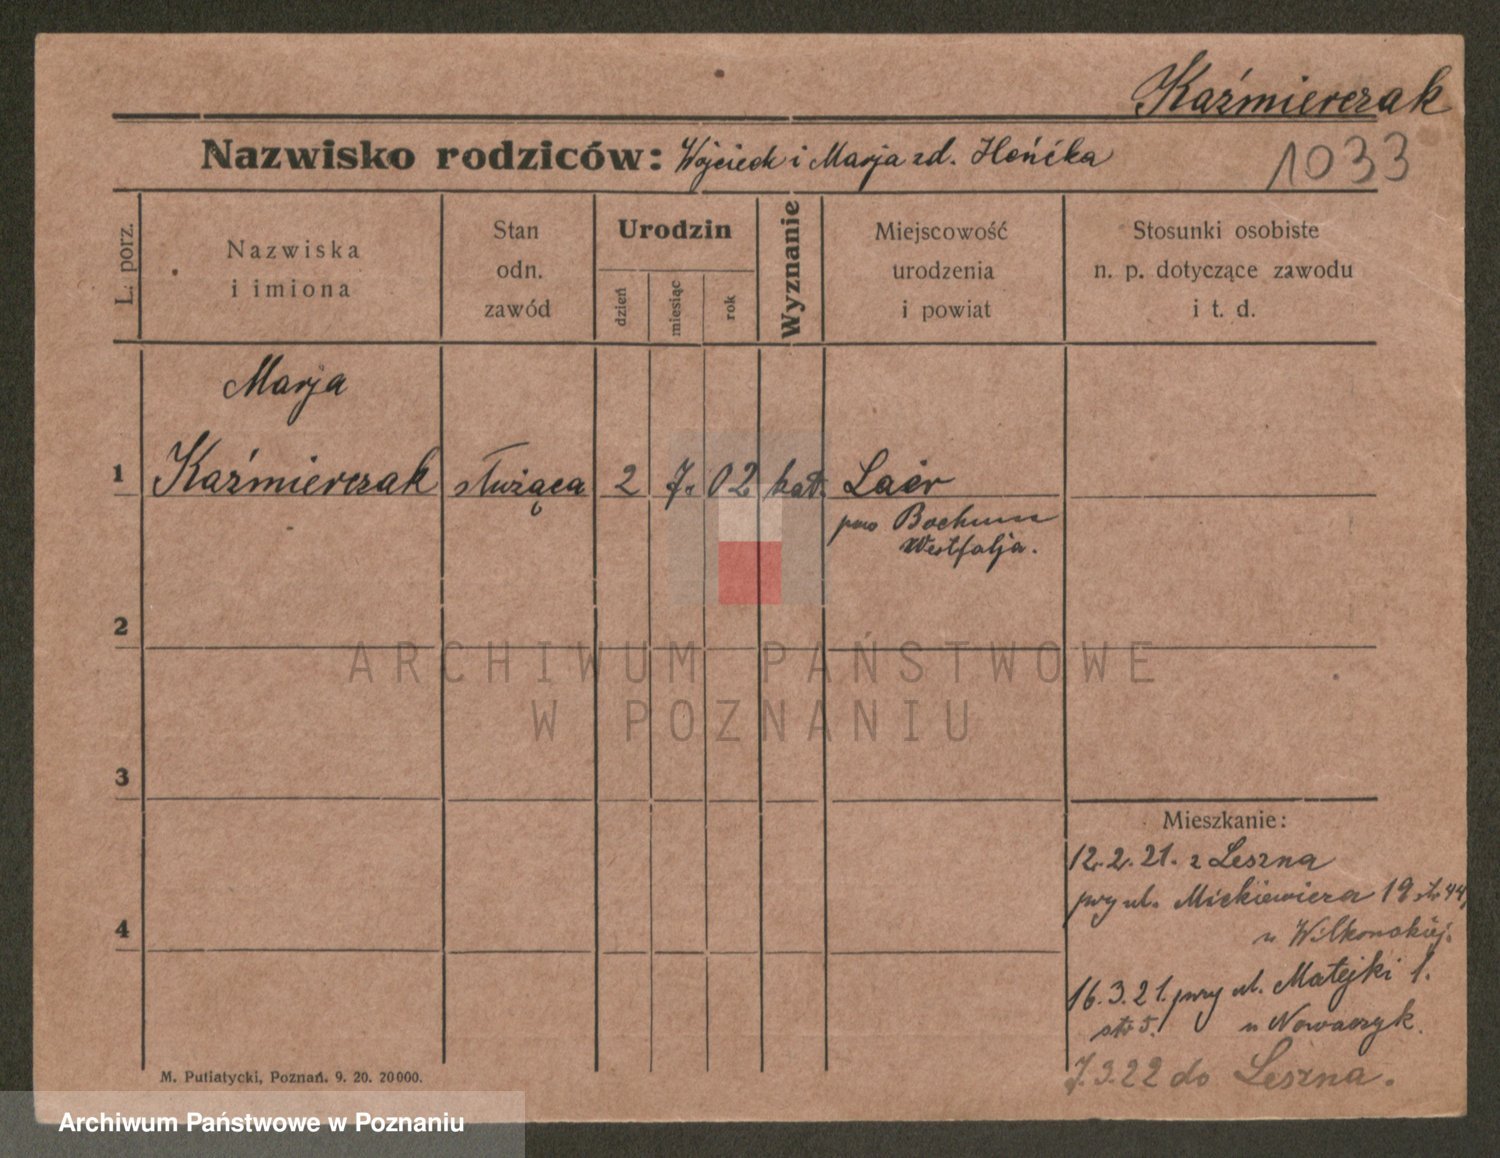 Kaźmierczak
1033
Nazwisko rodziców: Wojciech i Marja zd. Hońćka
L. porz.
Nazwiska
i imiona
Stan
odn.
zawód
Urodzin
dzień
miesiąc
rok
Wyznanie
Miejscowość
urodzenia
i powiat
Stosunki osobiste
n. p. dotyczące zawodu
i t. d.
Marja
1 Kaźmierczak służąca 2 7. 02 kat. Laer
pow Bochum
Westfalja.
2
3
4
Mieszkanie:
12.2.21. z Leszna
przy ul. Mickiewicza 19 str 44
u Wilkonskiej.
16.3.21. przy ul. Matejki 1.
str 5. u Nowaczyk.
7.3.22 do Leszna.
M. Putiatycki, Poznań. 9. 20. 20000.
ARCHIWUM PAŃSTWOWE
W POZNANIU
Archiwum Państwowe w Poznaniu